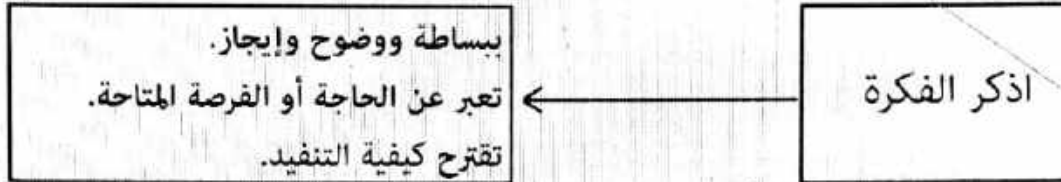 اذكر الفكرة
ببساطة ووضوح وإيجاز.
تعبر عن الحاجة أو الفرصة المتاحة.
تقترح كيفية التنفيد.